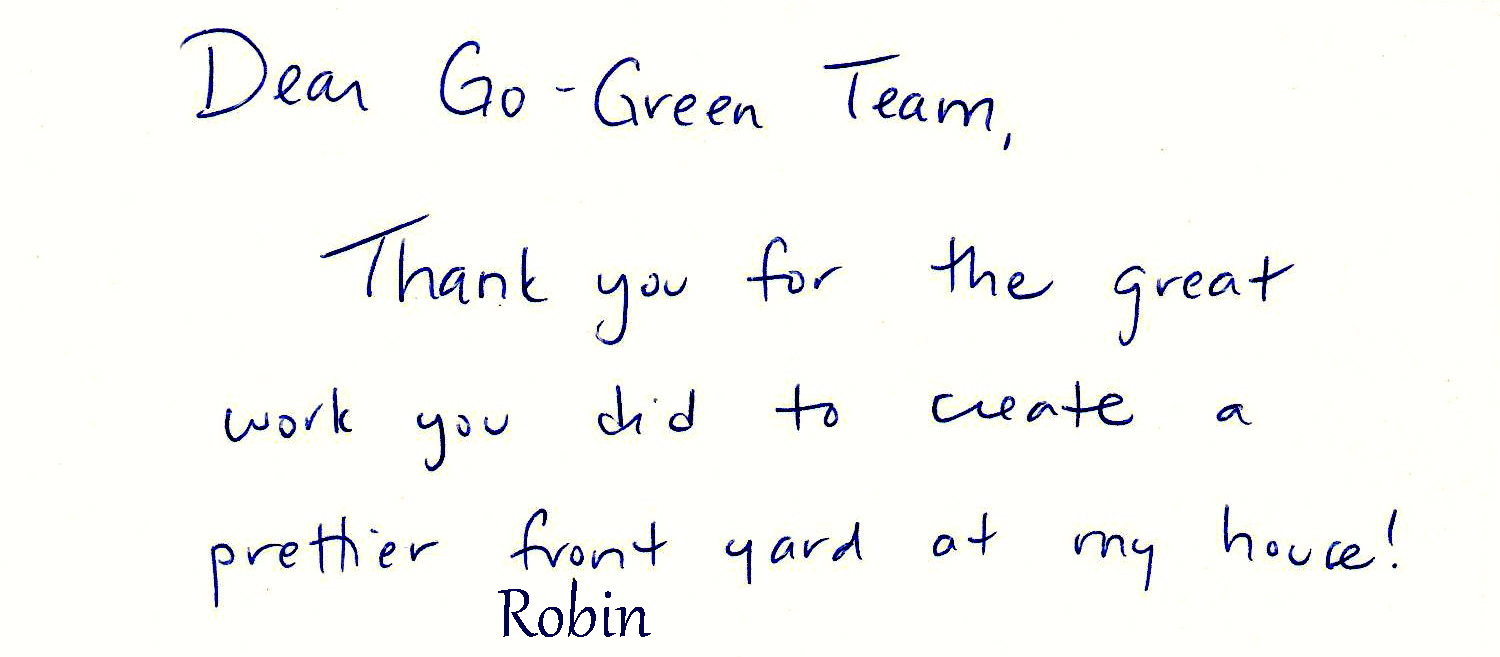 Dear Go-Green Team,
Thank you for the great
work you did to create a
prettier front yard at my house!
Robin